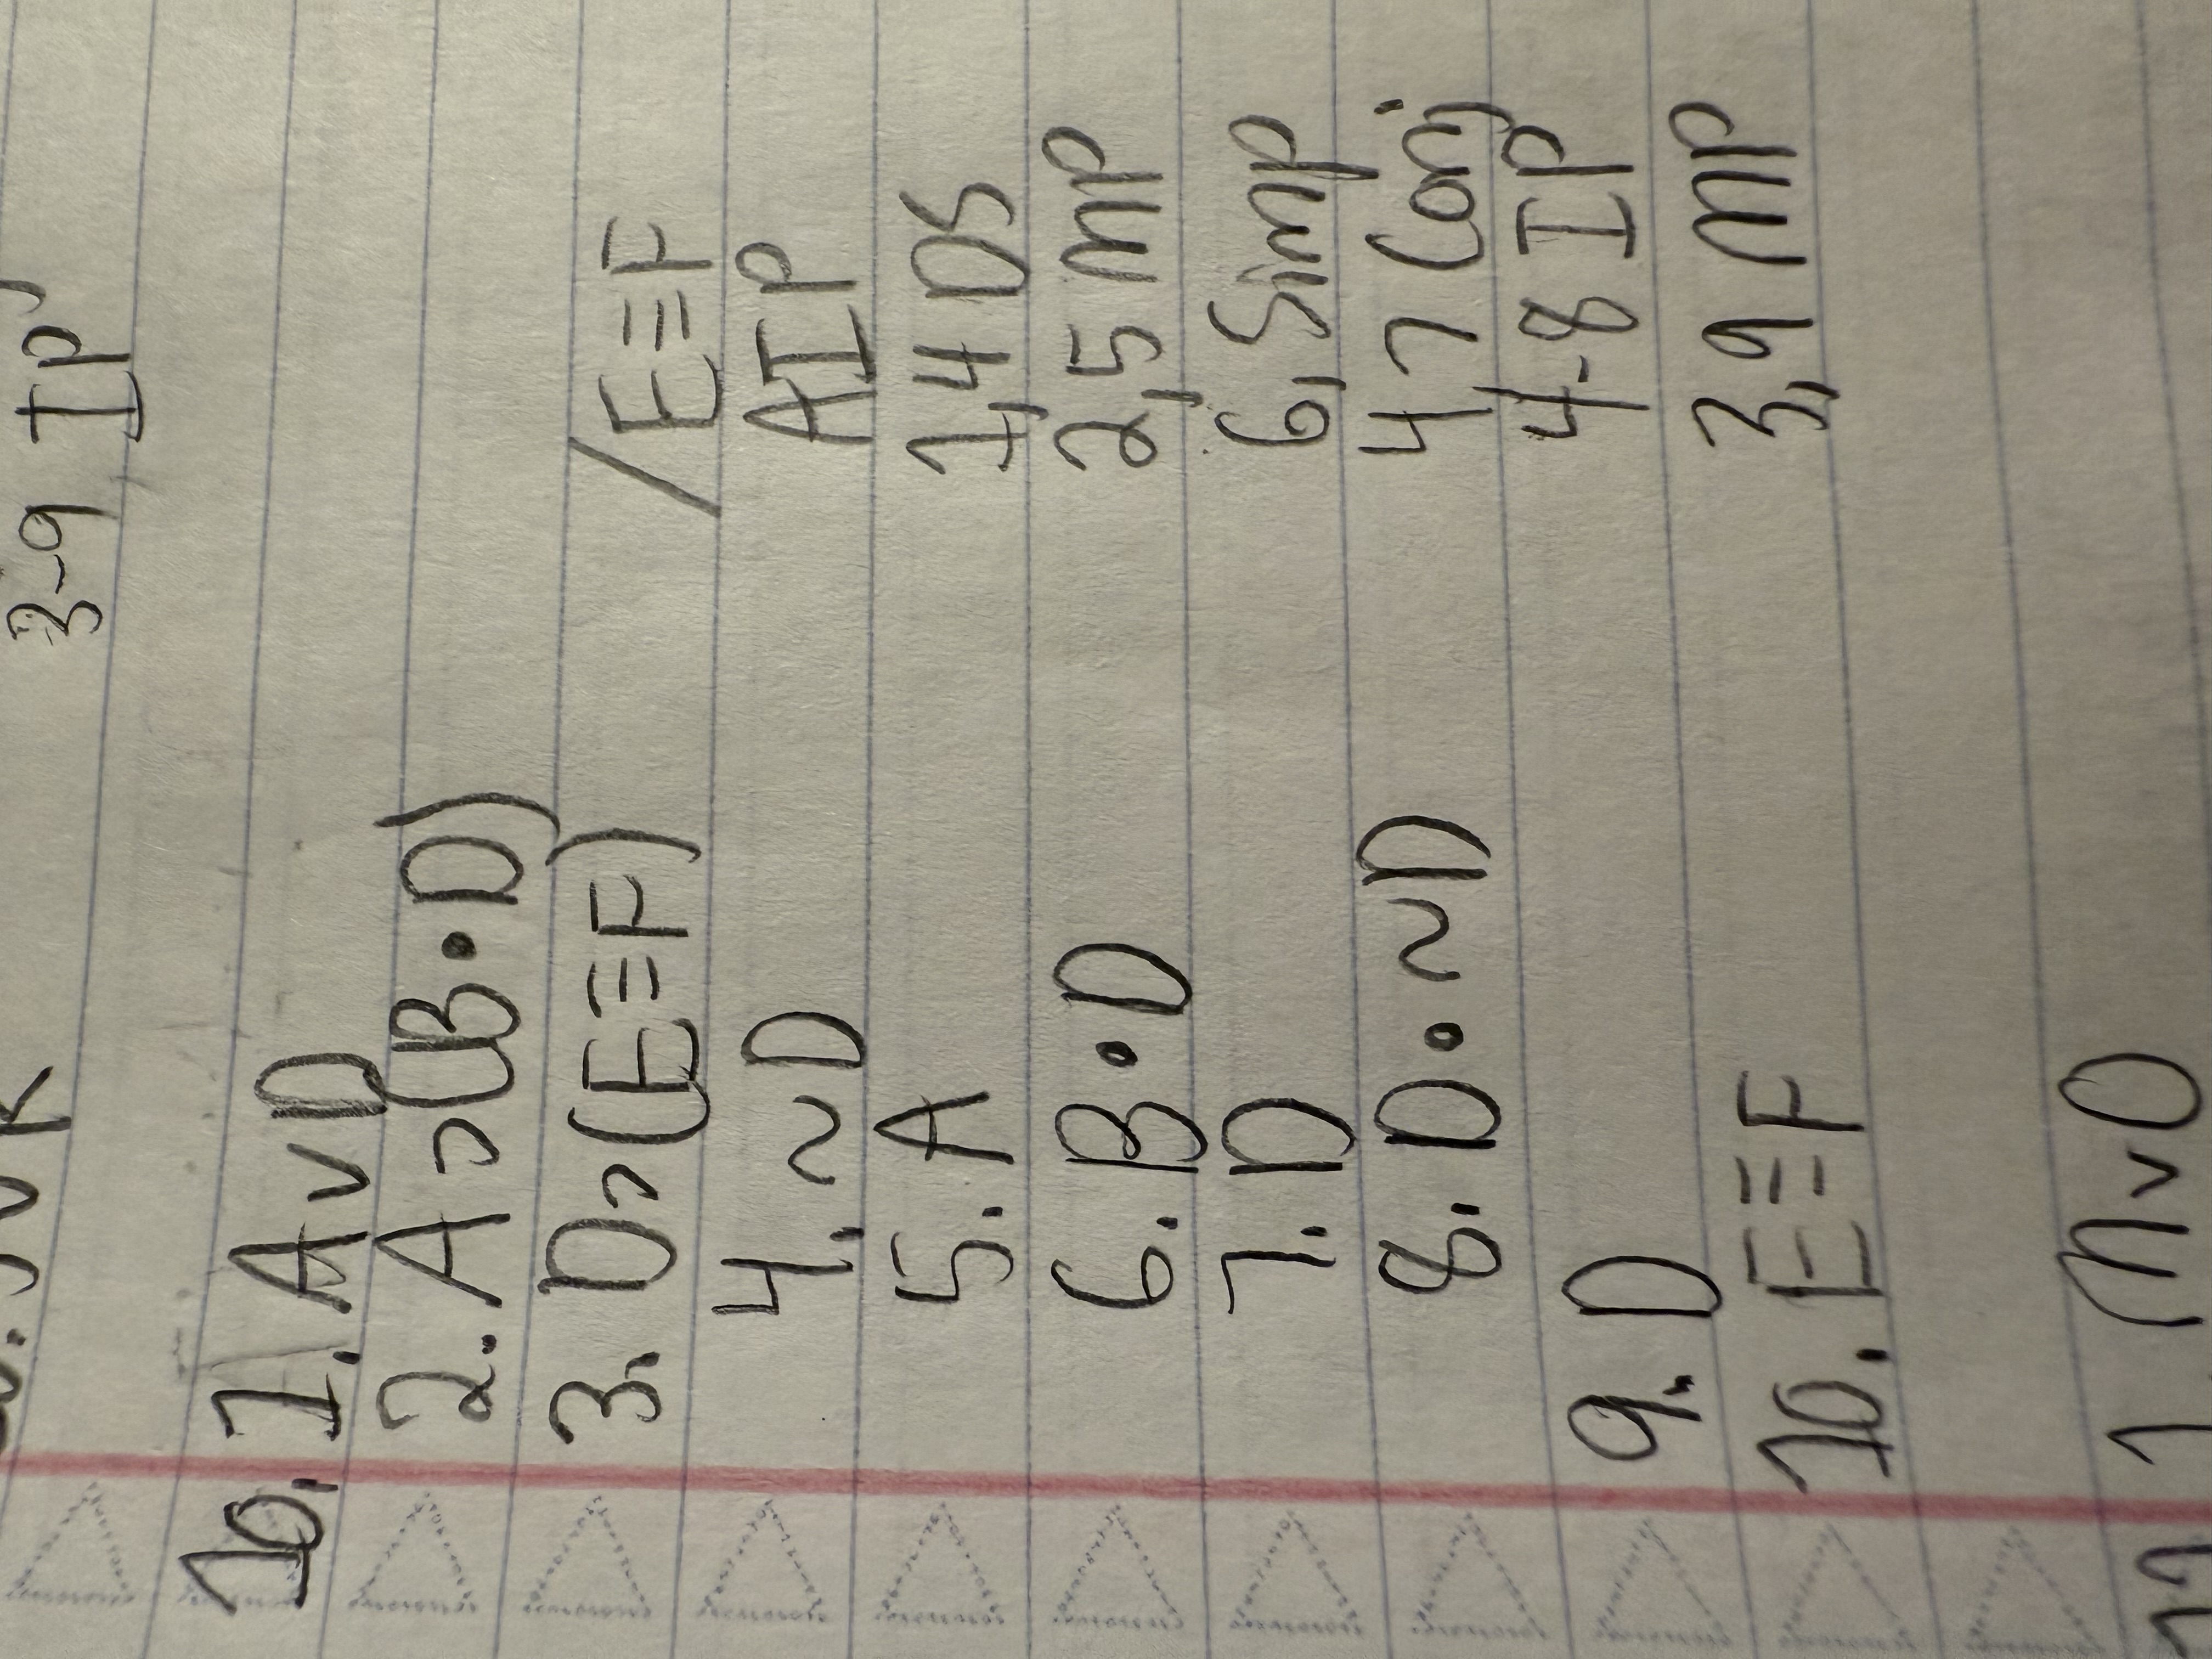 3-9 IP
10. 1. A v D
2. A ⊃ (B • D)
3. D ⊃ (E ≡ F) / E ≡ F
4. ~D AIP
5. A 1,4 DS
6. B • D 2,5 MP
7. D 6, Simp
8. D • ~D 4 7 Conj
9. D 4-8 IP
10. E ≡ F 3,9 MP
1. M v O